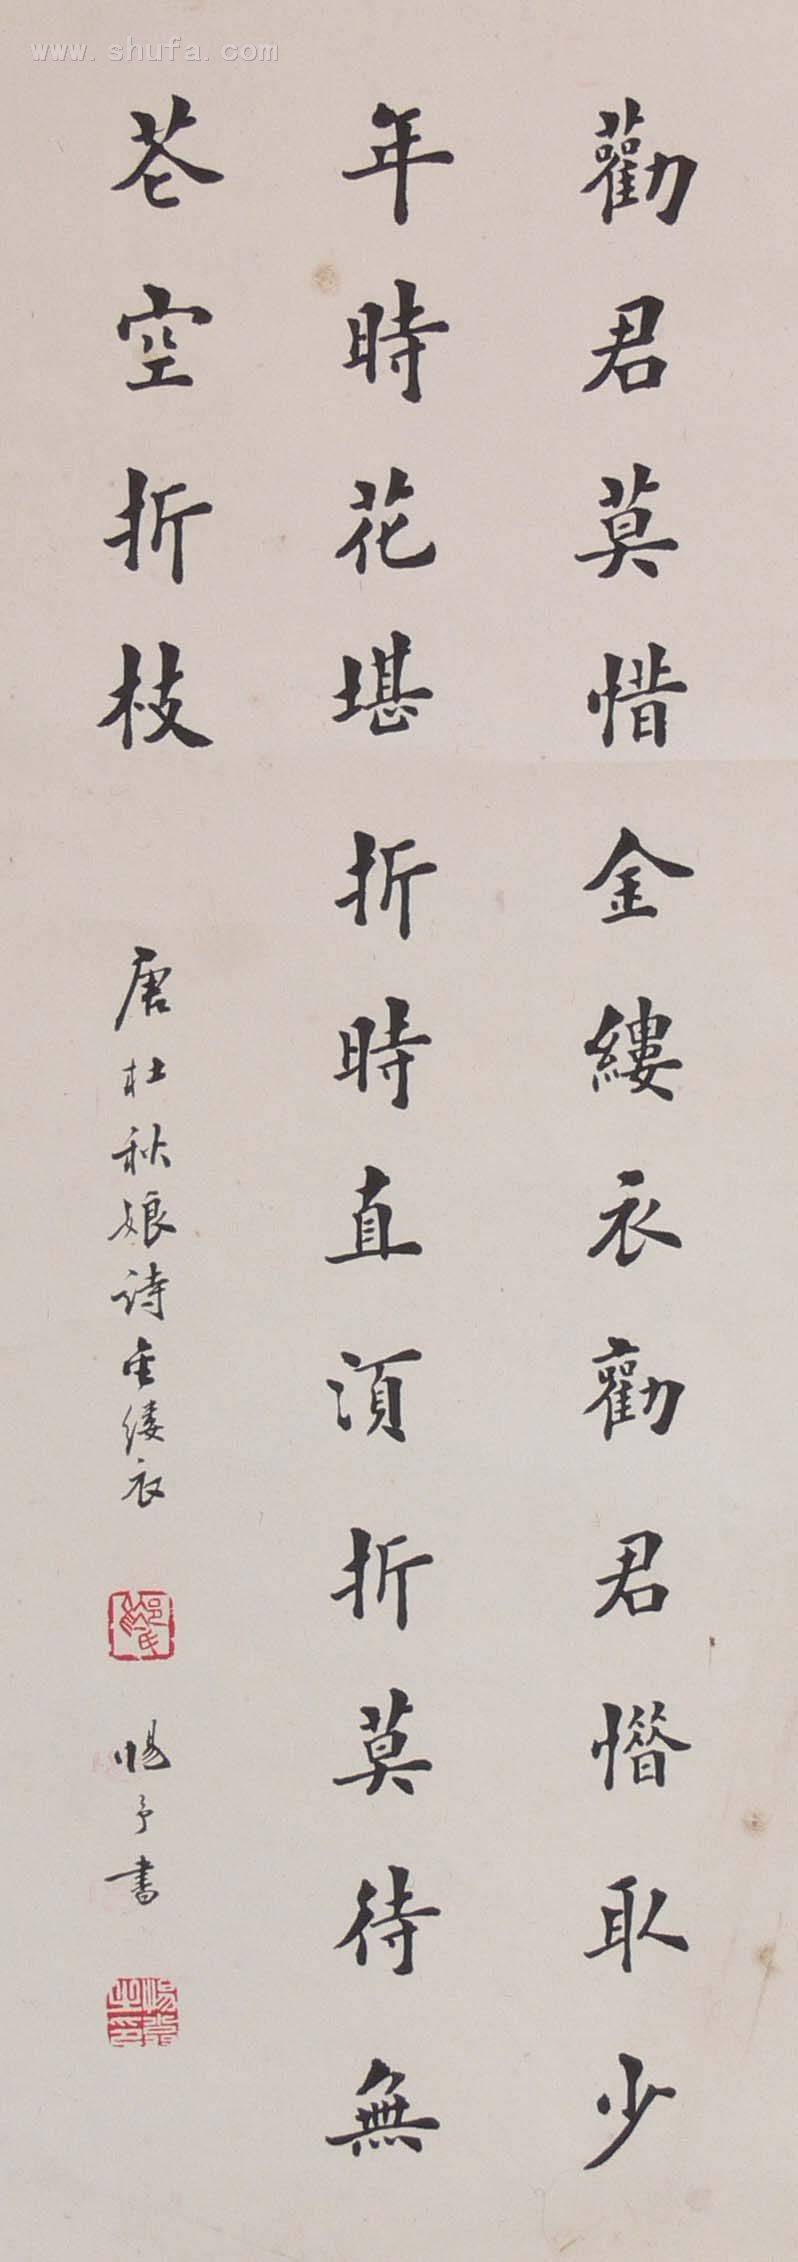 勸君莫惜金縷衣勸君惜取少
年時花堪折時直須折莫待無
花空折枝
唐杜秋娘詩金縷衣
暢予書
www.shufa.com